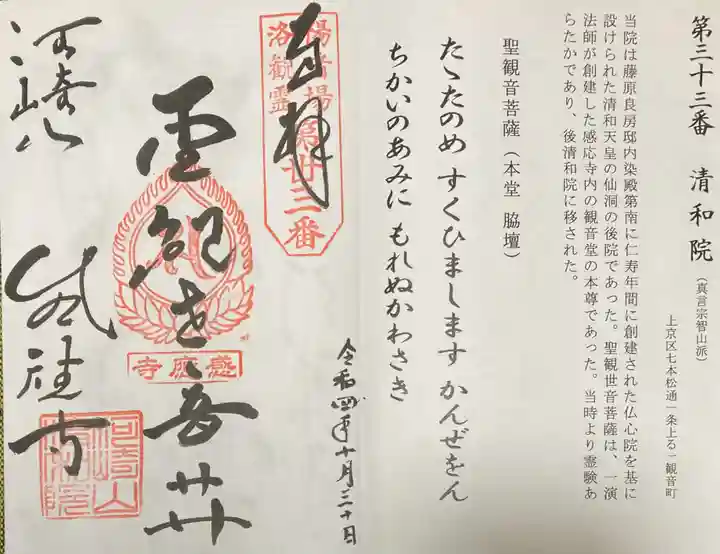 第三十三番 清和院（真言宗智山派）
上京区七本松通一条上る一観音町
当院は藤原良房邸内染殿第南に仁寿年間に創建された仏心院を基に
設けられた清和天皇の仙洞の後院であった。聖観世音菩薩は、一演
法師が創建した感応寺内の観音堂の本尊であった。当時より霊験あ
らたかであり、後清和院に移された。
聖観音菩薩（本堂 脇壇）
たゝたのめ すくひまします かんぜをん
ちかいのあみに もれぬかわさき
令和四年十月三十日
奉拝
洛陽観音霊場
第卅三番
感應寺
河崎山